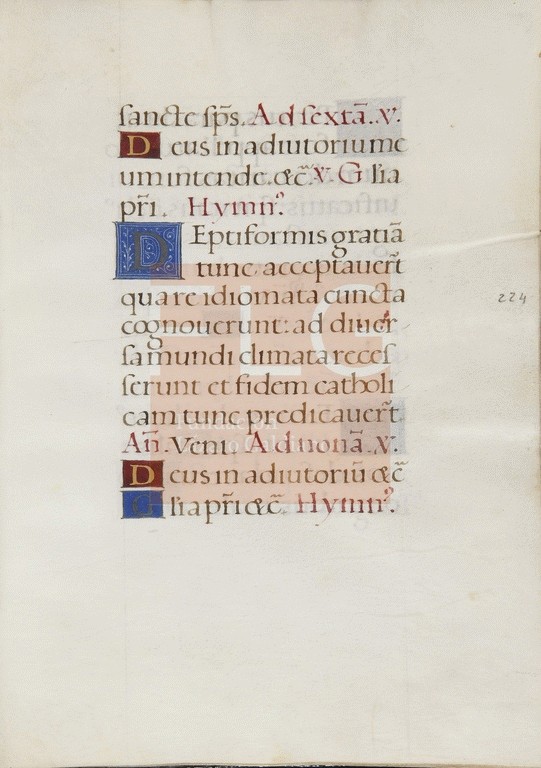 sancte sp̄s. Ad sextā. v.
Deus in adiutorium me
um intende. &c̄. v. Glia
pr̄i. Hymnꝰ.
DEptiformis gratiā
tunc acceptauer̄t
quare idiomata cuncta
cognouerunt: ad diuer
sa mundi climata reces
serunt et fidem catholi
cam tunc predicauer̄t.
Añ. Veni Ad nonā. v.
Deus in adiutoriū &c̄
Glia pr̄i &c̄. Hymnꝰ.
224
FLG
Fundación